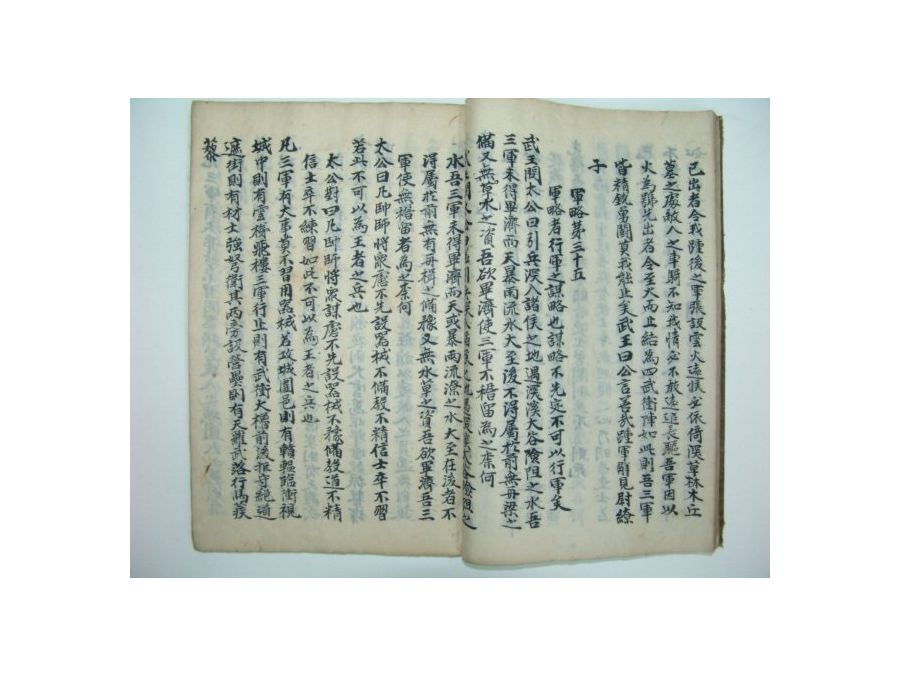 已出者令我踵後之軍張設雲火遠候必依倚深草林木丘
墓之處敵人之車騎不知我情必不敢遠追長驅吾軍因以
火為號先出者令至火而止結為四武衝陣如此則吾三軍
皆精銳勇鬪莫我能止矣武王曰公言善哉踵軍解見尉繚
子
軍略第三十五
軍略者行軍之謀略也謀略不先定不可以行軍矣
武王問太公曰引兵深入諸侯之地遇深溪大谷險阻之水吾
三軍未得畢濟而天暴雨流水大至後不得屬於前無舟梁之
備又無水草之資吾欲畢濟使三軍不稽留為之柰何
水吾三軍未得畢濟而天或暴雨流潦之水大至在後者不
得屬於前無有舟楫之備糇又無水草之資吾欲畢濟吾三
軍使無稽留者為之柰何
太公曰凡帥師將眾慮不先設器械不備教不精信士卒不習
若此不可以為王者之兵也
太公對曰凡帥師將眾謀慮不先設器械不豫備教道不精
信士卒不練習如此不可以為王者之兵也
凡三軍有大事莫不習用器械若攻城圍邑則有轒轀臨衝視
城中則有雲梯飛樓三軍行止則有武衝大櫓前後拒守絕道
遮街則有材士強弩衛其兩旁設營壘則有天羅武落行馬蒺
藜